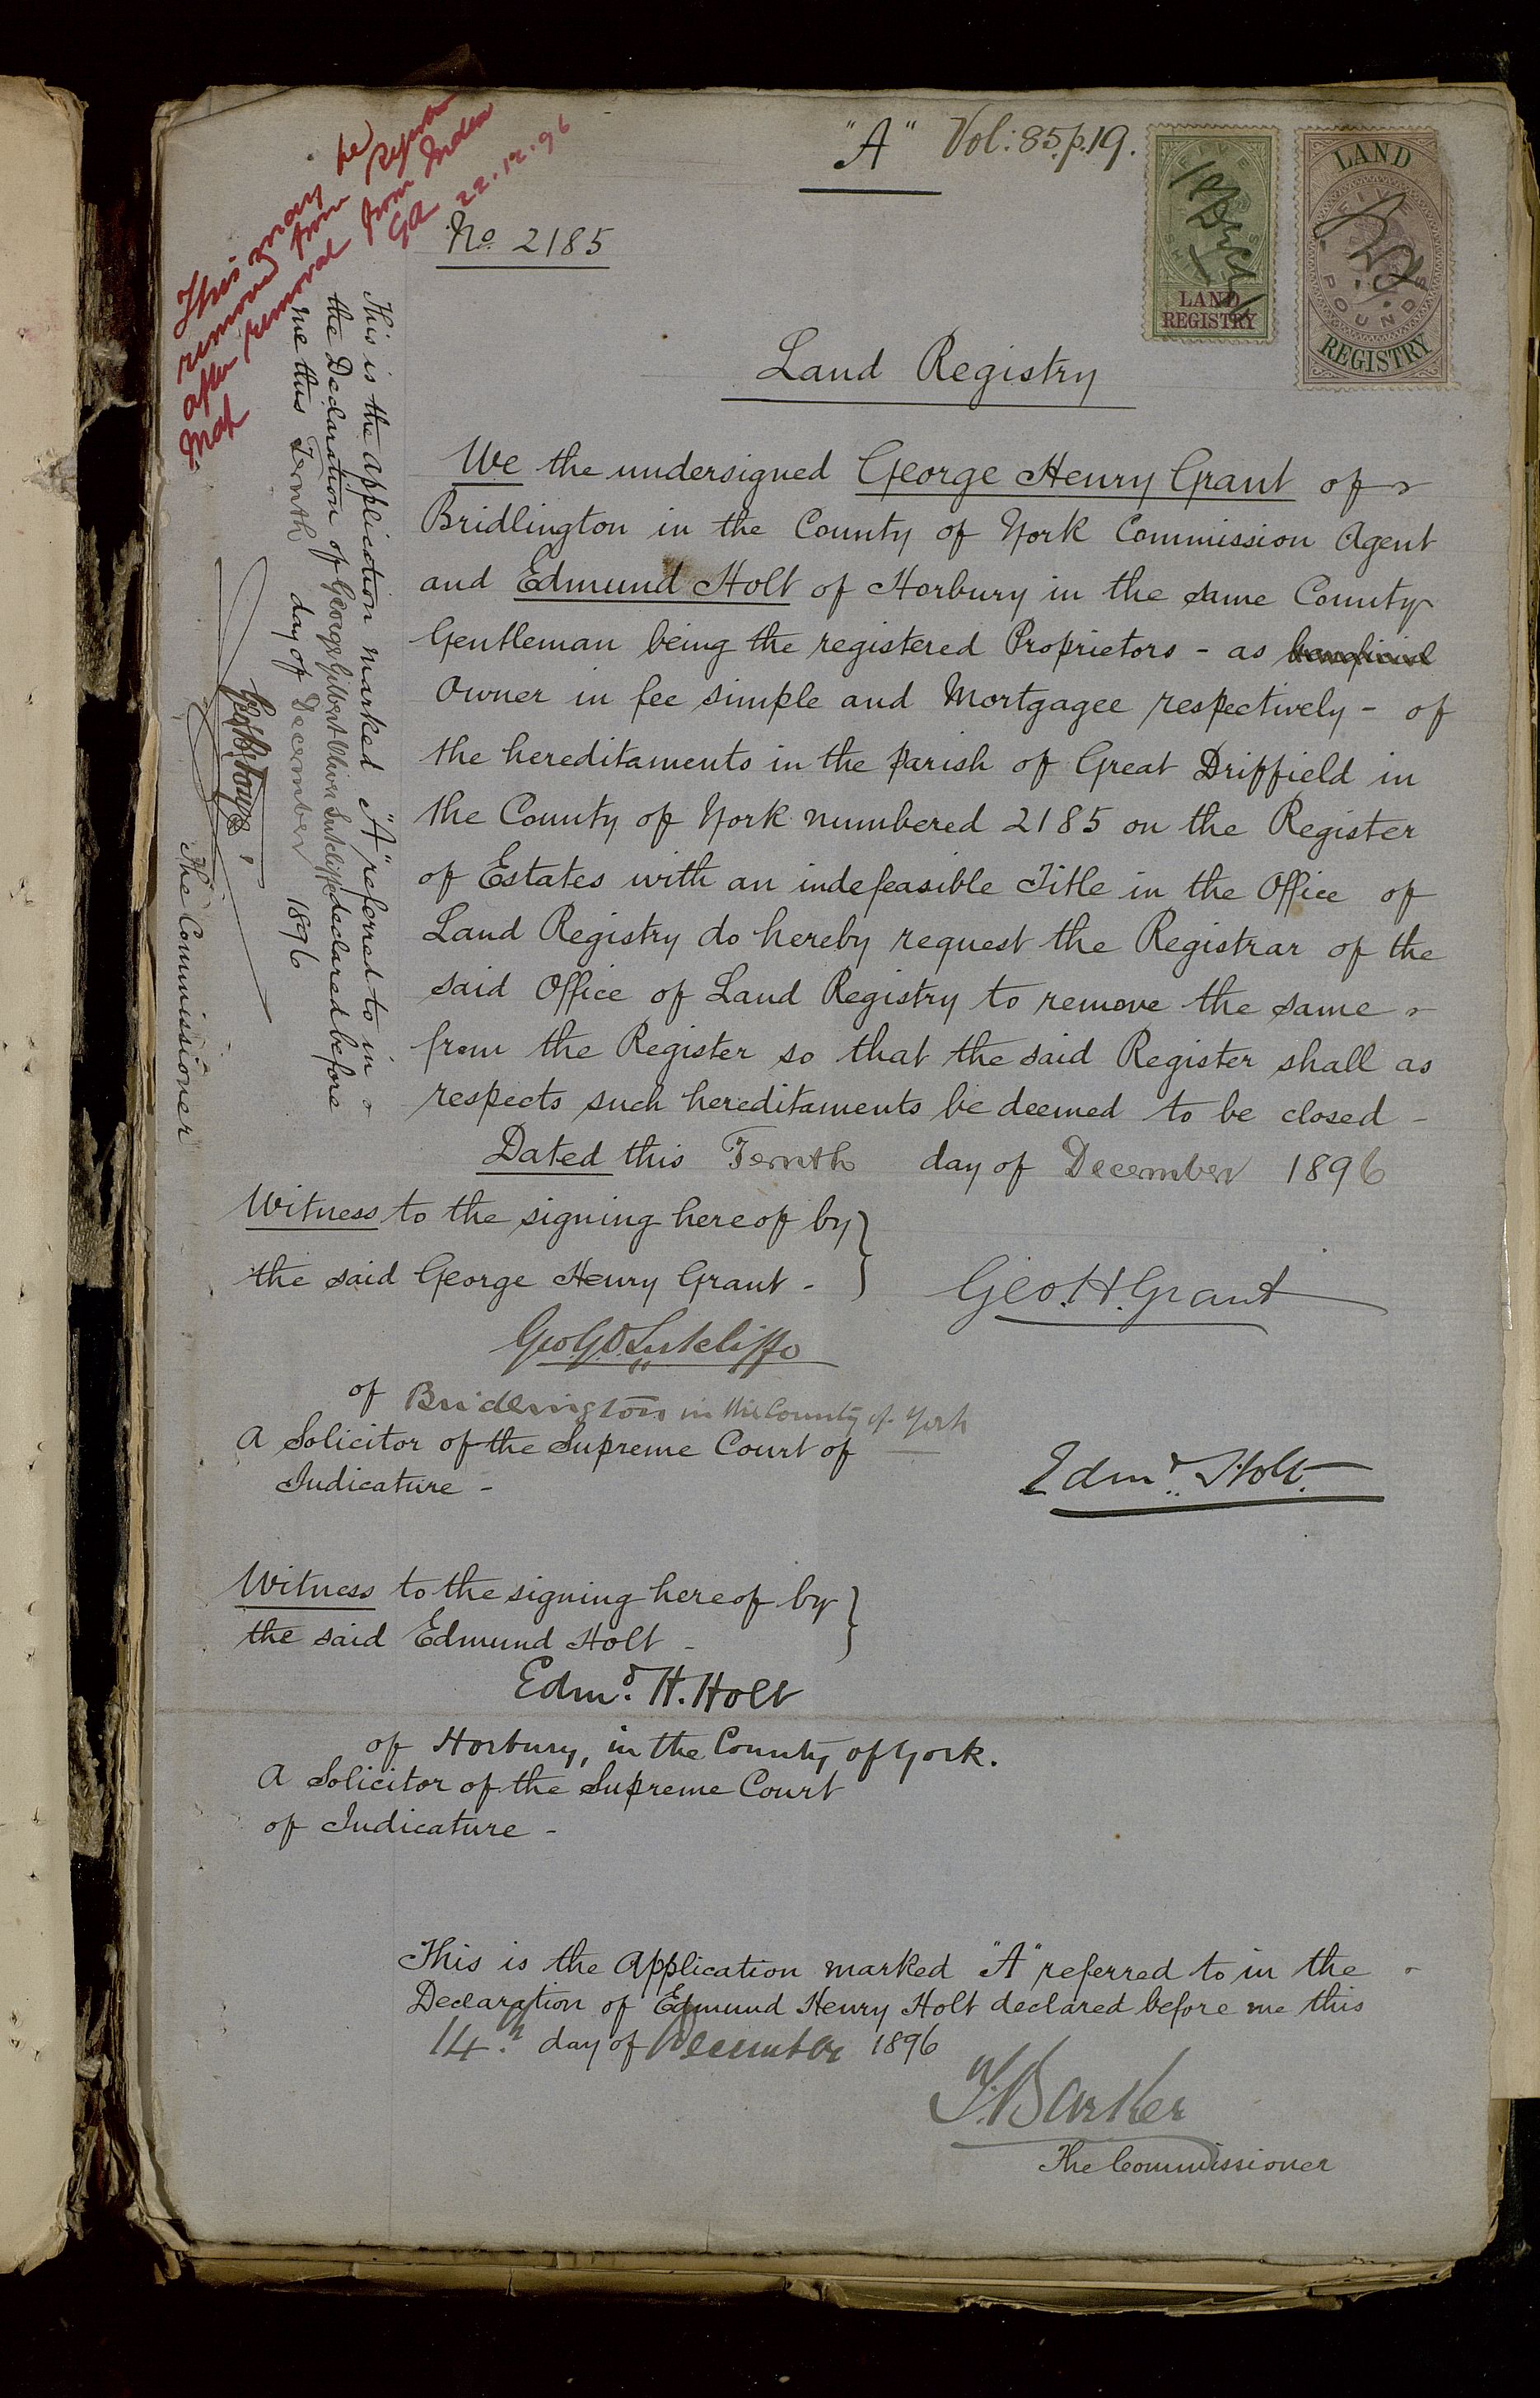 "A" Vol: 85. p. 19.
No. 2185
FIVE
SHILLINGS
LAND
REGISTRY
LAND
FIVE
POUNDS
REGISTRY
This may be
removed from Register
after removal from Index
Map GA 22.12.96
Land Registry
We the undersigned George Henry Grant of
Bridlington in the County of York Commission Agent
and Edmund Holt of Horbury in the same County
Gentleman being the registered Proprietors - as beneficial
Owner in fee simple and Mortgagee respectively - of
the hereditaments in the parish of Great Driffield in
the County of York numbered 2185 on the Register
of Estates with an indefeasible Title in the Office of
Land Registry do hereby request the Registrar of the
said Office of Land Registry to remove the same
from the Register so that the said Register shall as
respects such hereditaments be deemed to be closed -
Dated this Tenth day of December 1896
Witness to the signing hereof by
the said George Henry Grant -
Geo. H. Grant
Geo. G. O. Sutcliffe
of Bridlington in the County of York
A Solicitor of the Supreme Court of
Judicature -
Edmd. Holt.
Witness to the signing hereof by
the said Edmund Holt -
Edmd. H. Holt
of Horbury, in the County of York.
A Solicitor of the Supreme Court
of Judicature -
This is the Application marked "A" referred to in the
Declaration of Edmund Henry Holt declared before me this
14th day of December 1896
Barker
The Commissioner
This is the application marked "A" referred to in
the Declaration of George Gilbert Oliver Sutcliffe declared before
me this Tenth day of December 1896
The Commissioner